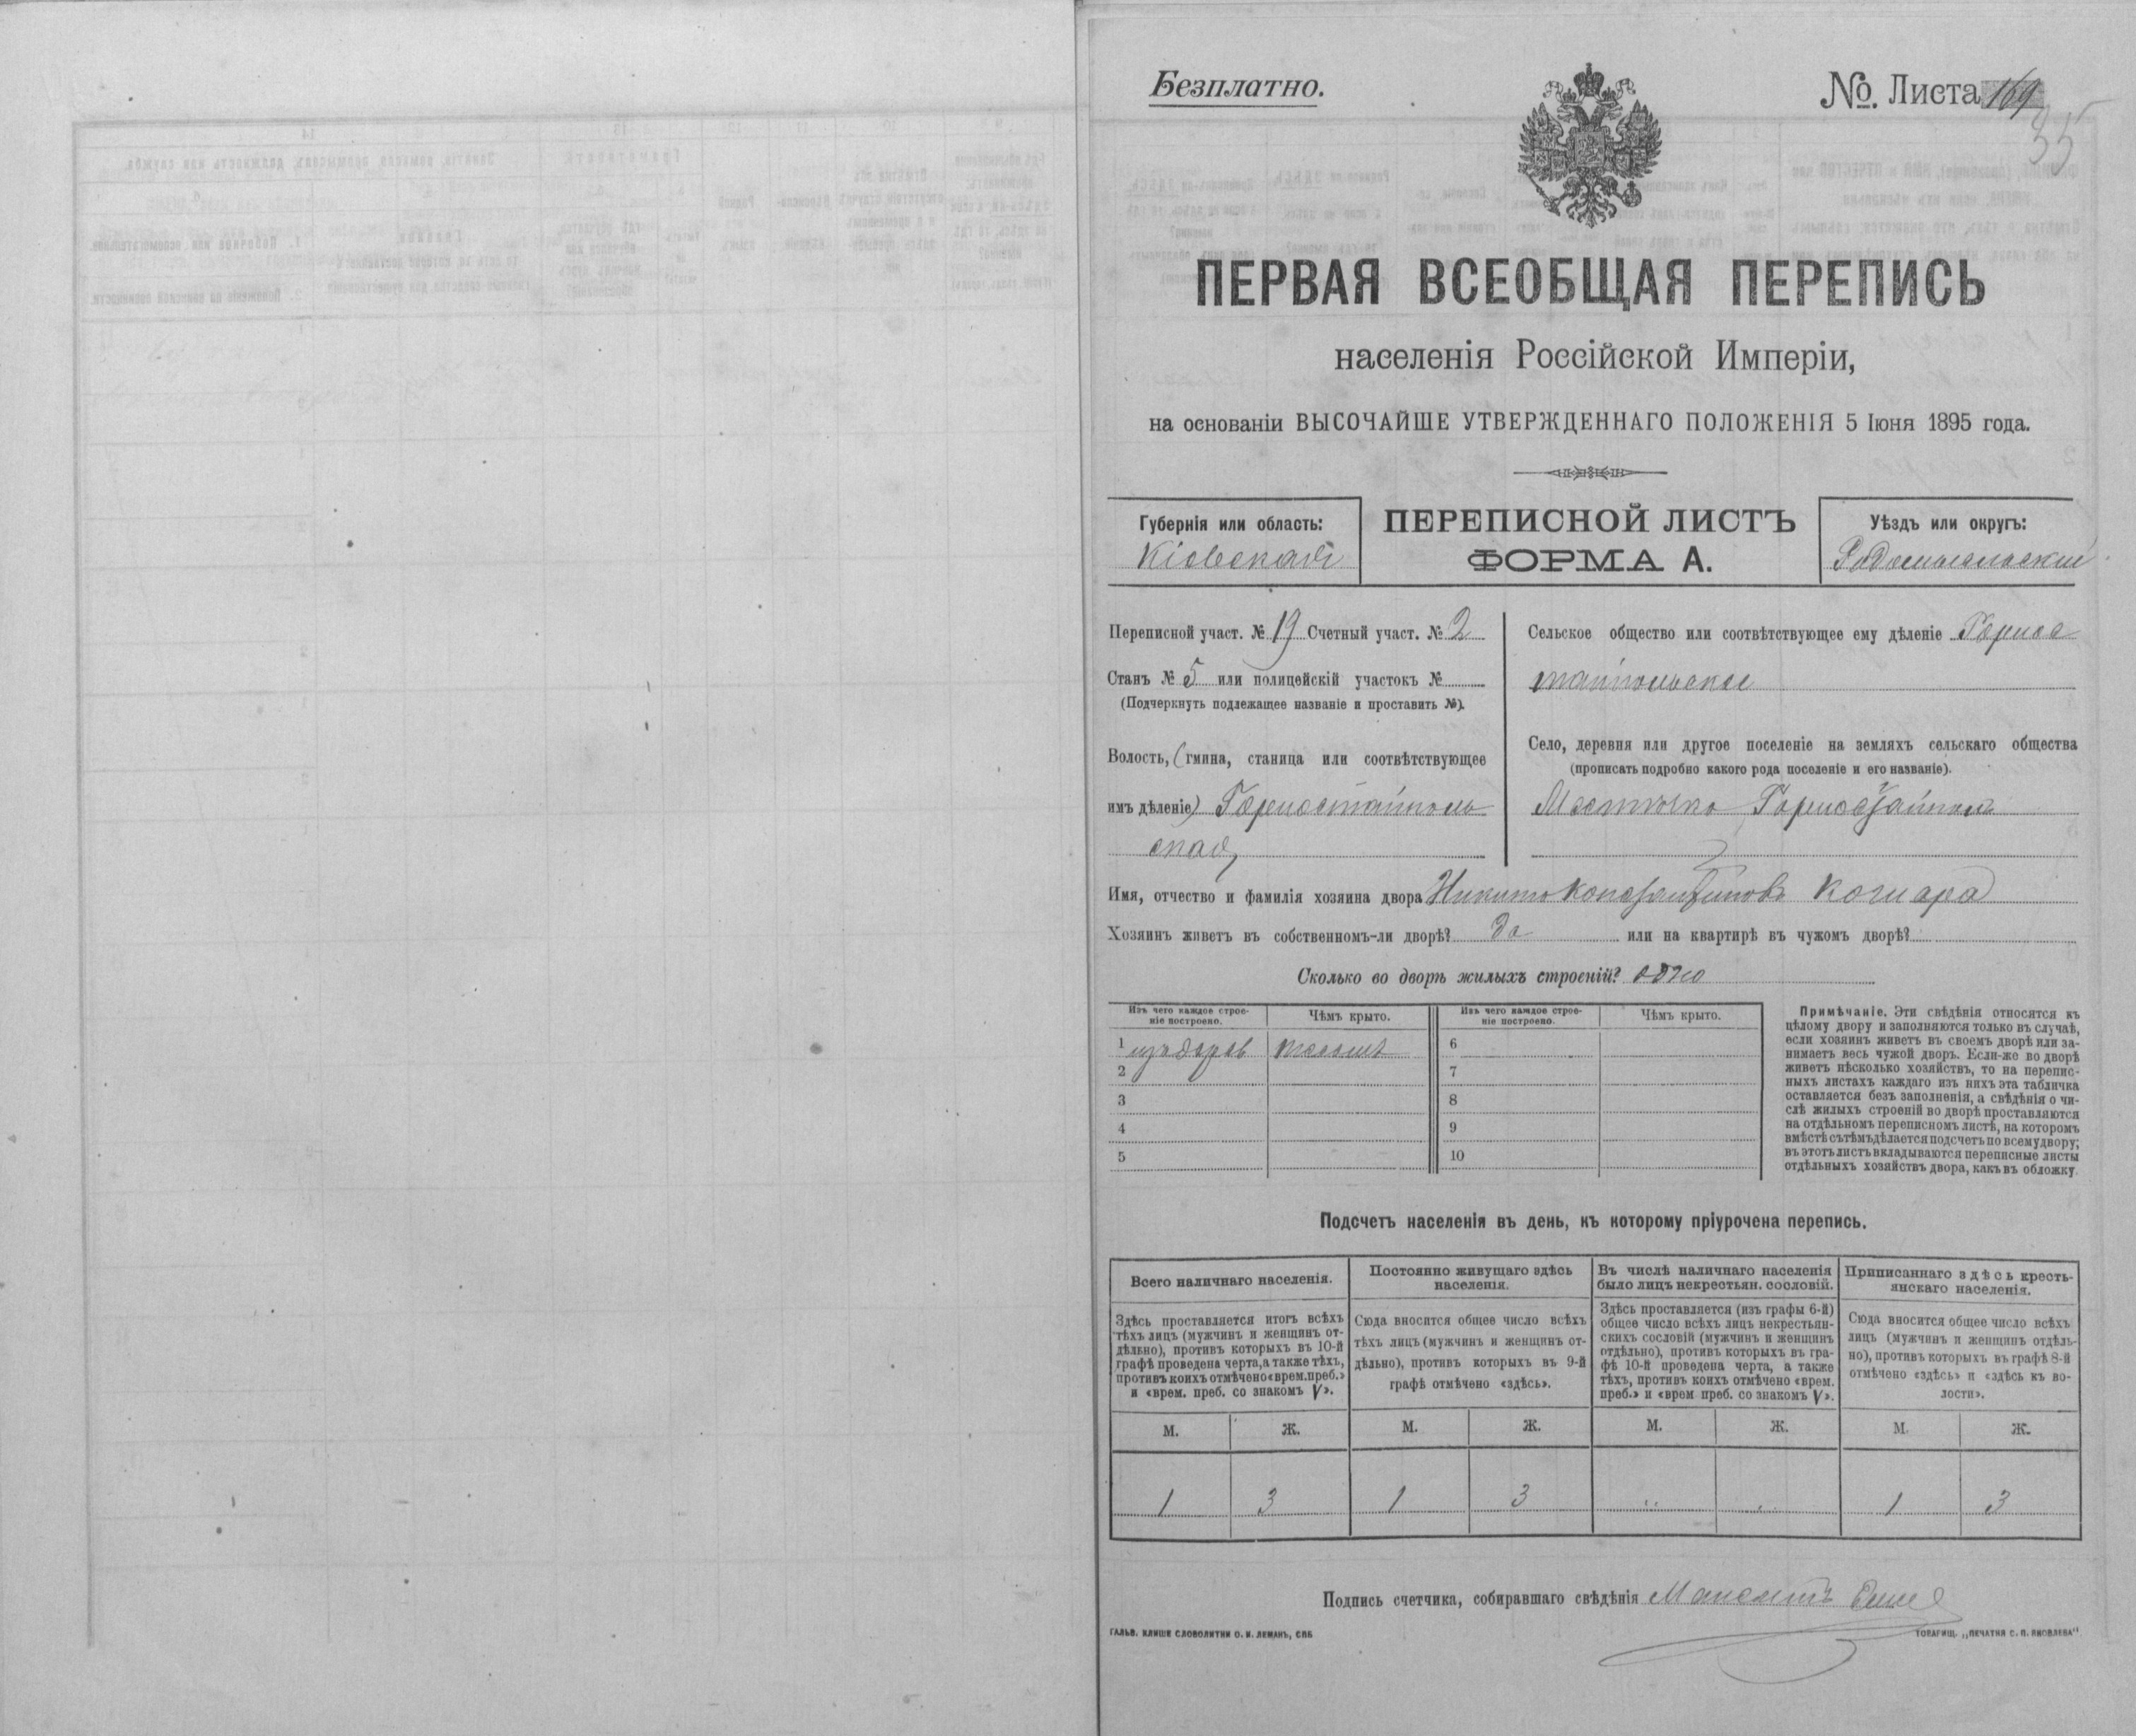 Безплатно.
№ Листа 169
35
ПЕРВАЯ ВСЕОБЩАЯ ПЕРЕПИСЬ
населенія Россійской Имперіи,
на основаніи ВЫСОЧАЙШЕ УТВЕРЖДЕННАГО ПОЛОЖЕНІЯ 5 Іюня 1895 года.
Губернія или область:
Кіевская
ПЕРЕПИСНОЙ ЛИСТЪ
ФОРМА А.
Уѣздъ или округъ:
Радомысльскій
Переписной участ. № 19 Счетный участ. № 2
Станъ № 5 или полицейскій участокъ №
(Подчеркнуть подлежащее названіе и проставить №).
Волость, (гмина, станица или соотвѣтствующее
имъ дѣленіе) Горностайполь
ская
Сельское общество или соотвѣтствующее ему дѣленіе Горнос
тайпольское
Село, деревня или другое поселеніе на земляхъ сельскаго общества
(прописать подробно какого рода поселеніе и его названіе).
Местечко Горностайполь
Имя, отчество и фамилія хозяина двора Никита Константиновъ Кошара
Хозяинъ живетъ въ собственномъ-ли дворѣ? да или на квартирѣ въ чужомъ дворѣ?
Сколько во дворѣ жилыхъ строеній? одно
Изъ чего каждое строе-
ніе построено.
Чѣмъ крыто.
Изъ чего каждое строе-
ніе построено.
Чѣмъ крыто.
1 изъ дерев
6
2
7
3
8
4
9
5
10
Примѣчаніе. Эти свѣдѣнія относятся къ
цѣлому двору и заполняются только въ случаѣ,
если хозяинъ живетъ въ своемъ дворѣ или за-
нимаетъ весь чужой дворъ. Если-же во дворѣ
живетъ нѣсколько хозяйствъ, то на перепис-
ныхъ листахъ каждаго изъ нихъ эта табличка
оставляется безъ заполненія, а свѣдѣнія о чи-
слѣ жилыхъ строеній во дворѣ проставляются
на отдѣльномъ переписномъ листѣ, на которомъ
вмѣстѣ съ тѣмъ дѣлается подсчетъ по всему двору;
въ этотъ листъ вкладываются переписные листы
отдѣльныхъ хозяйствъ двора, какъ въ обложку.
Подсчетъ населенія въ день, къ которому пріурочена перепись.
Всего наличнаго населенія.
Здѣсь проставляется итогъ всѣхъ
тѣхъ лицъ (мужчинъ и женщинъ от-
дѣльно), противъ которыхъ въ 10-й
графѣ проведена черта, а также тѣхъ,
противъ коихъ отмѣчено «врем. преб.»
и «врем. преб. со знакомъ V».
Постоянно живущаго здѣсь
населенія.
Сюда вносится общее число всѣхъ
тѣхъ лицъ (мужчинъ и женщинъ от-
дѣльно), противъ которыхъ въ 9-й
графѣ отмѣчено «здѣсь».
Въ числѣ наличнаго населенія
было лицъ некрестьян. сословій.
Здѣсь проставляется (изъ графы 6-й)
общее число всѣхъ лицъ некрестьян-
скихъ сословій (мужчинъ и женщинъ
отдѣльно), противъ которыхъ въ гра-
фѣ 10-й проведена черта, а также
тѣхъ, противъ коихъ отмѣчено «врем.
преб.» и «врем преб. со знакомъ V».
Приписаннаго здѣсь кресть-
янскаго населенія.
Сюда вносится общее число всѣхъ
лицъ (мужчинъ и женщинъ отдѣль-
но), противъ которыхъ въ графѣ 8-й
отмѣчено «здѣсь» и «здѣсь къ во-
лости».
М. Ж. М. Ж. М. Ж. М. Ж.
1 3 1 3 „ „ 1 3
Подпись счетчика, собиравшаго свѣдѣнія
ГАЛЬВ. КЛИШЕ СЛОВОЛИТНИ О. И. ЛЕМАНЪ, СПБ
ТОВАРИЩ. „ПЕЧАТНЯ С. П. ЯКОВЛЕВА"